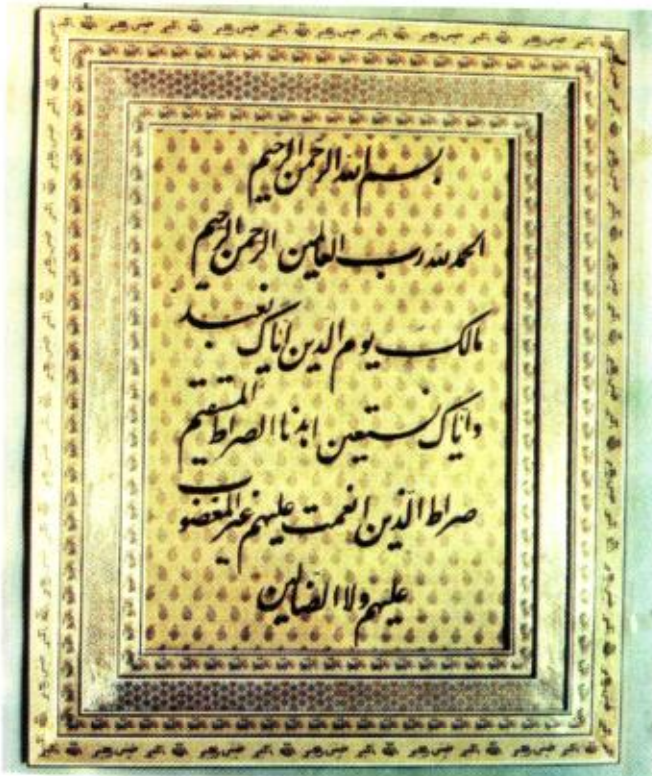 بسم الله الرحمن الرحیم
الحمد لله رب العالمین الرحمن الرحیم
مالک یوم الدین ایّاک نعبد
و ایّاک نستعین اهدنا الصراط المستقیم
صراط الّذین انعمت علیهم غیر المغضوب
علیهم ولا الضالین